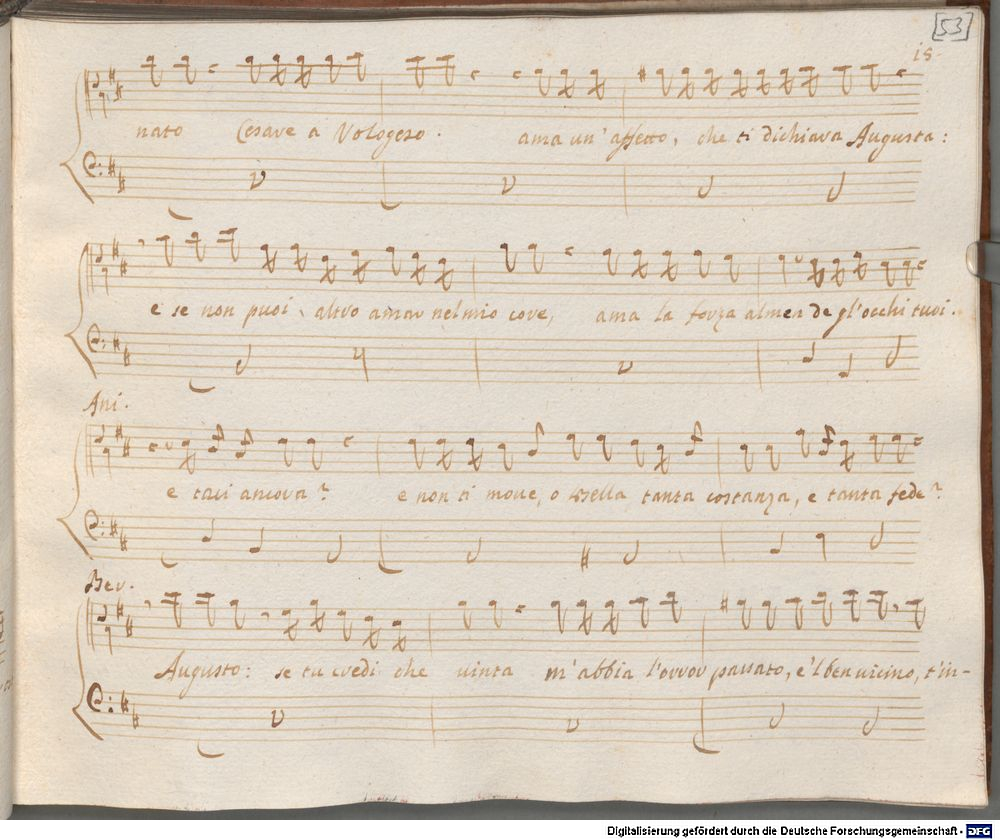 [53]
15.
nato Cesare a Vologeso. ama un'affetto, che ti dichiara Augusta:
e se non puoi, altro amar nel mio core, ama la forza almen de gl'occhi tuoi.
Ani.
e taci ancora? e non ti moue, o Bella tanta costanza, e tanta fede?
Ber.
Augusto: se tu credi che uinta m'abbia l'orror passato, e'l ben uicino, t'in-
Digitalisierung gefördert durch die Deutsche Forschungsgemeinschaft - DFG